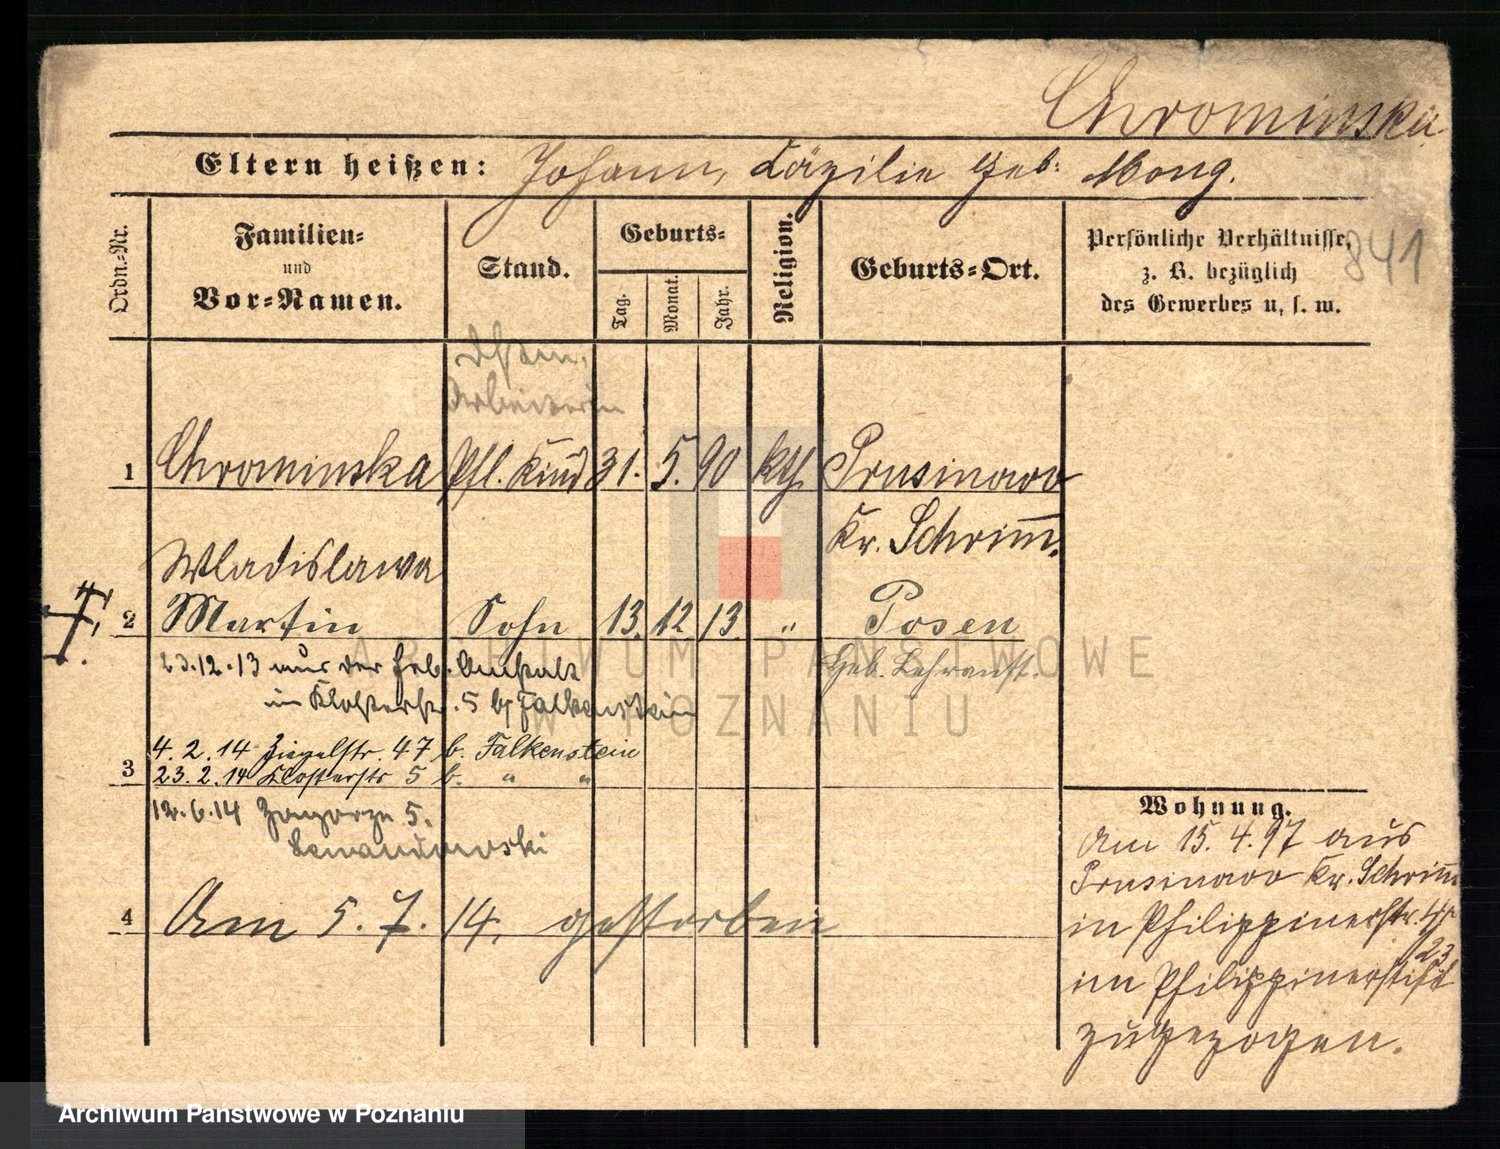 Chrominska
Eltern heißen: Johann, Cäzilie geb. Mong.
841
Ordn.-Nr.
Familien-
und
Vor-Namen.
Stand.
Geburts-
Tag.
Monat.
Jahr.
Religion.
Geburts-Ort.
Persönliche Verhältnisse,
z. B. bezüglich
des Gewerbes u. s. w.
Arbeiterin
1 Chrominska Pfl. Kind 31. 5. 90 kth. Prusinowo
Kr. Schrimm.
Wladislawa
2 Martin Sohn 13. 12 13. " Posen
23.12.13 aus der Anstalt
im Klosterstr. 5 b/ Falkenstein
4. 2. 14 Ziegelstr. 47 b. Falkenstein
3 23. 2. 14 Klosterstr 5 b. " "
12.6.14 Zagorze 5.
Lewandowski
4 Am 5. 7. 14. gestorben
Wohnung.
Am 15. 4. 97 aus
Prusinowo Kr. Schrimm
in Philippinerstr.
23
im Philippinerstift
zugezogen.
ARCHIWUM PAŃSTWOWE
W POZNANIU
Archiwum Państwowe w Poznaniu